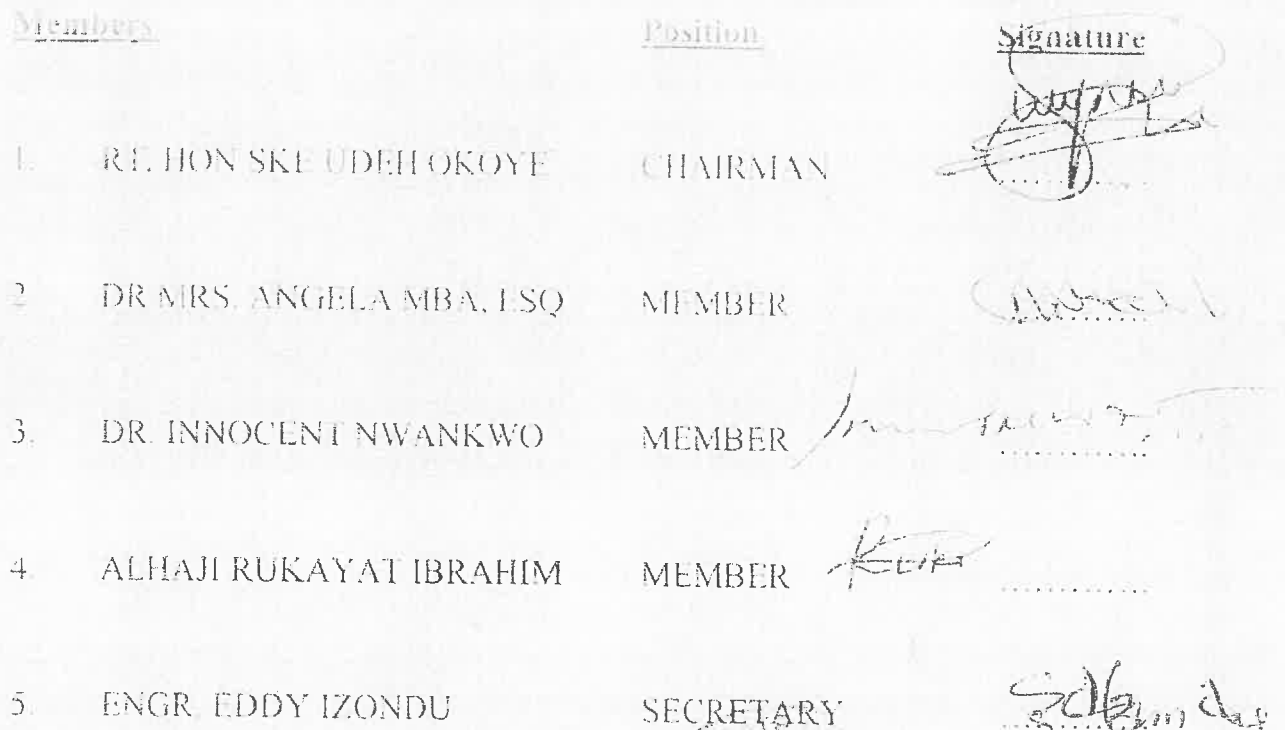 Members Position Signature
1. RT. HON SKE UDEH OKOYE CHAIRMAN ............
2 DR MRS. ANGELA MBA, ESQ MEMBER ............
3. DR. INNOCENT NWANKWO MEMBER ............
4. ALHAJI RUKAYAT IBRAHIM MEMBER ............
5. ENGR. EDDY IZONDU SECRETARY ............